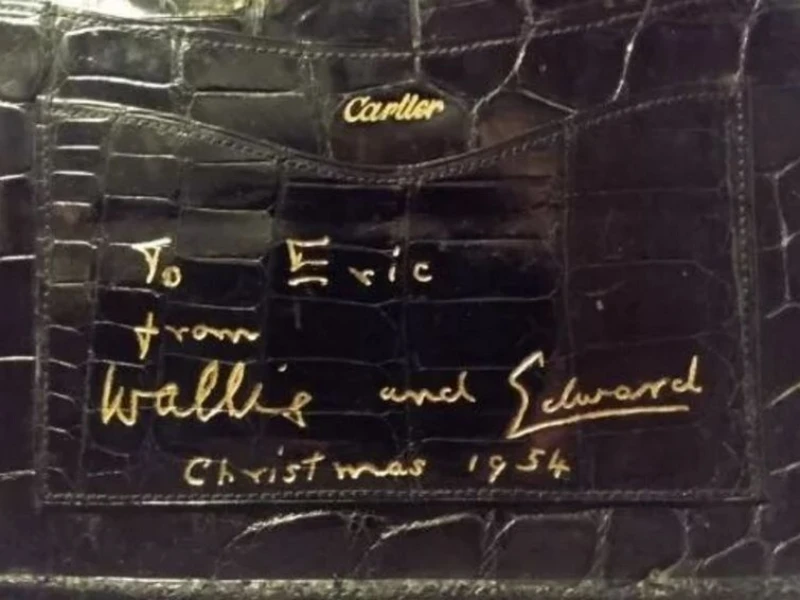 Cartier
To Eric
from
Wallis and Edward
Christmas 1954